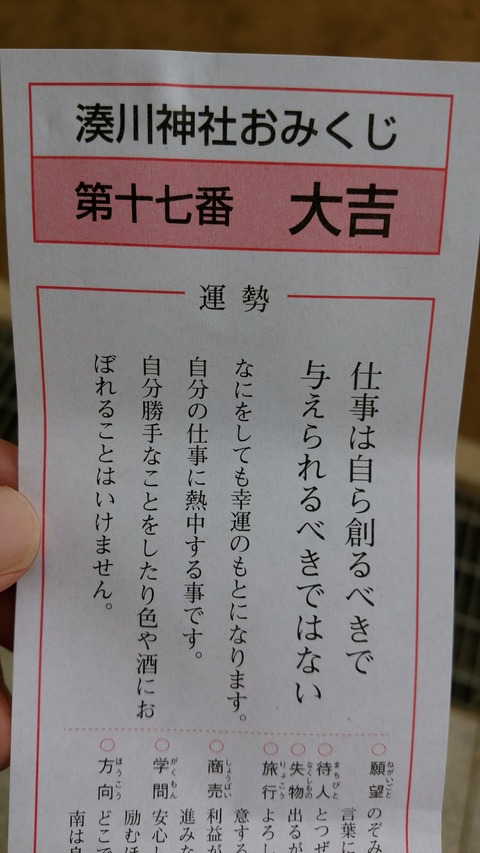 湊川神社おみくじ
第十七番 大吉
運勢
仕事は自ら創るべきで
与えられるべきではない
なにをしても幸運のもとになります。
自分の仕事に熱中する事です。
自分勝手なことをしたり色や酒にお
ぼれることはいけません。
○願望 ねがいごと のぞみ
言葉に
○待人 まちびと とつぜ
○失物 なくしもの 出るが
○旅行 りょこう よろし
意する
○商売 しょうばい 利益が
進みな
○学問 がくもん 安心し
励むほ
○方向 ほうこう どこで
南は